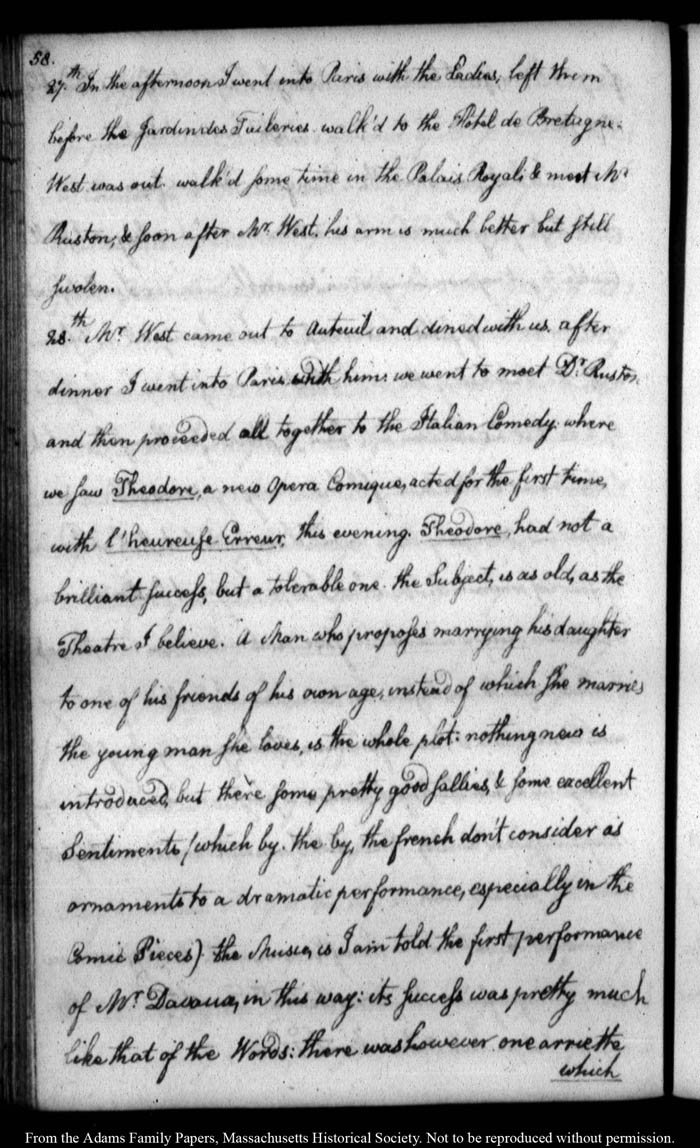 58.
27.th In the afternoon I went into Paris with the Ladies, left them
before the Jardin des Tuileries. walk'd to the Hôtel de Bretagne.
West was out. walk'd some time in the Palais Royal, & meet Mr
Ruston, & soon after Mr. West. his arm is much better but still
swolen.
28.th Mr. West came out to Auteuil and dined with us. after
dinner I went into Paris with him: we went to meet Dr. Ruston
and then proceeded all together to the Italian Comedy: where
we saw Theodore, a new Opera Comique, acted for the first time,
with l'heureuse Erreur, this evening. Theodore, had not a
brilliant success, but a tolerable one. the Subject, is as old, as the
Theatre I believe. A Man who proposes marrying his daughter
to one of his friends of his own age, instead of which she marries
the young man she loves, is the whole plot: nothing new is
introduced, but there some pretty good sallies, & some excellent
Sentiments (which by. the by, the french don't consider as
ornaments to a dramatic performance, especially in the
Comic Pieces) the Music, is I am told the first performance
of Mr. Davaux, in this way: its success was pretty much
like that of the Words: there was however one arriette
which
From the Adams Family Papers, Massachusetts Historical Society. Not to be reproduced without permission.